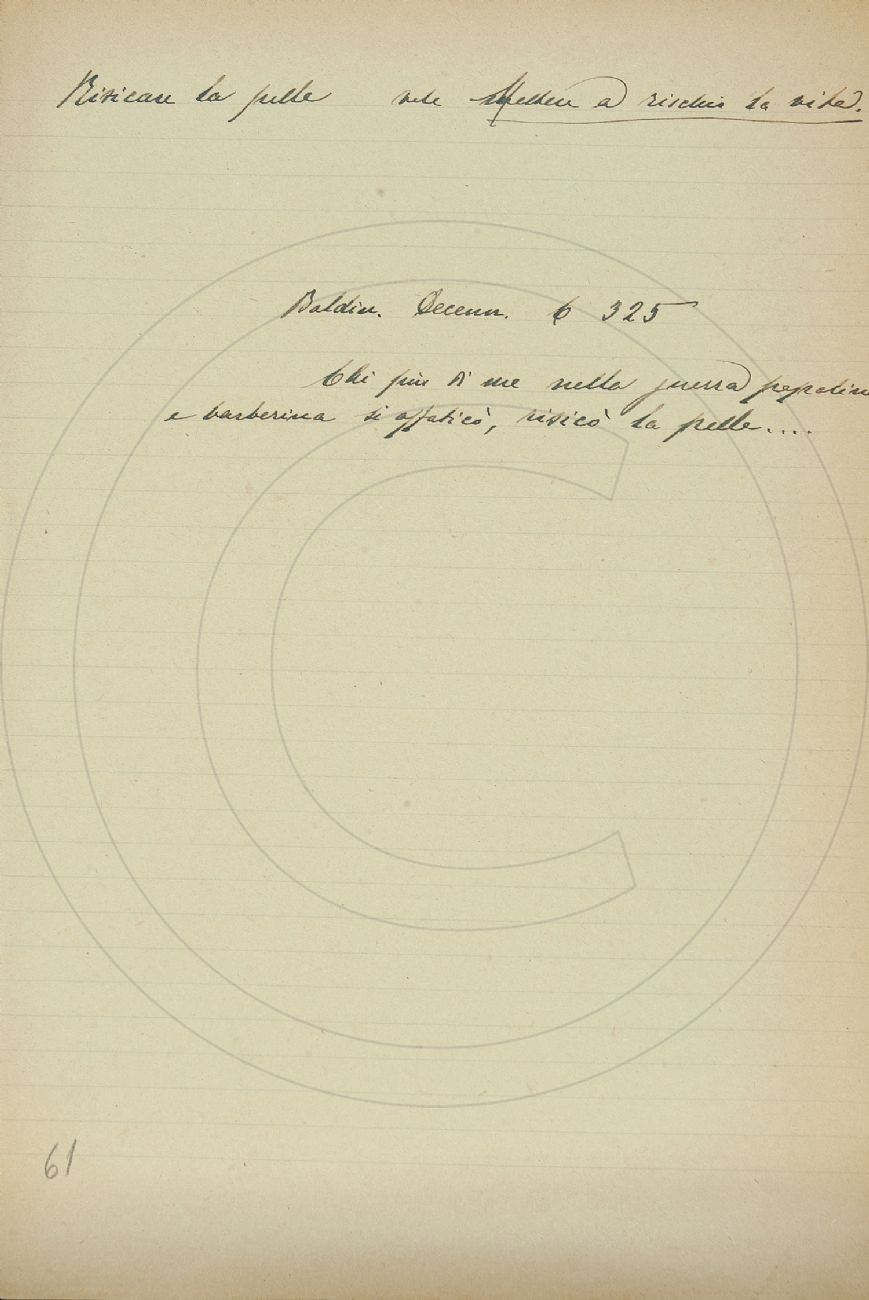 Risicare la pelle vale Mettere a rischio la vita.
Baldin. Decenn. 6 325
Chi più di me nella guerra papalina
e barberina si affaticò, risicò la pelle....
61